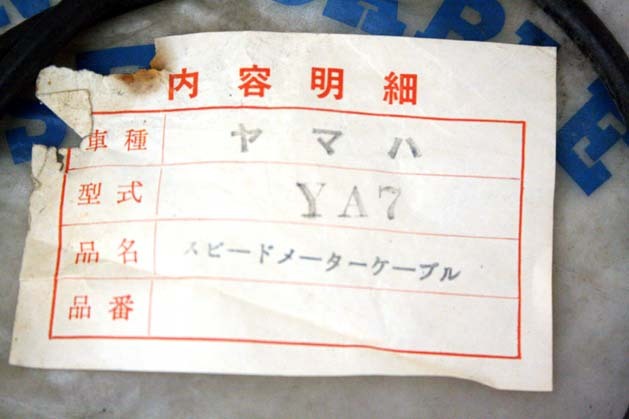 内容明細
車種 ヤマハ
型式 YA7
品名 スピードメーターケーブル
品番